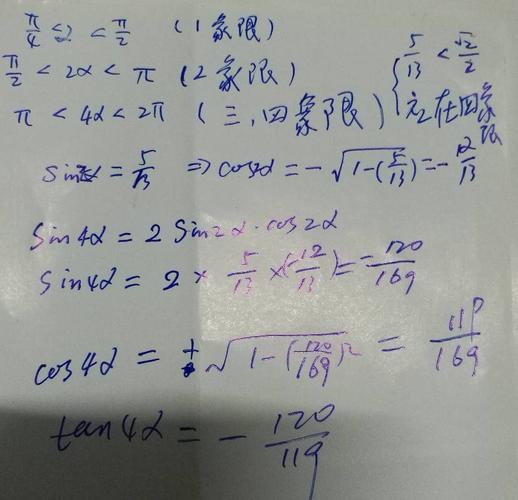 π/4 < 2 < π/2 (1象限)
π/2 < 2α < π (2象限)
π < 4α < 2π (三、四象限)
{ 5/13 < √2/2
在四象限
sin2α = 5/13 ⇒ cos2α = -√1-(5/13) = -12/13
Sin4α = 2 Sin2α·cos2α
Sin4α = 2 × 5/13 ×(-12/13) = -120/169
cos4α = +√1-(120/169)² = 119/169
tan4α = - 120/119